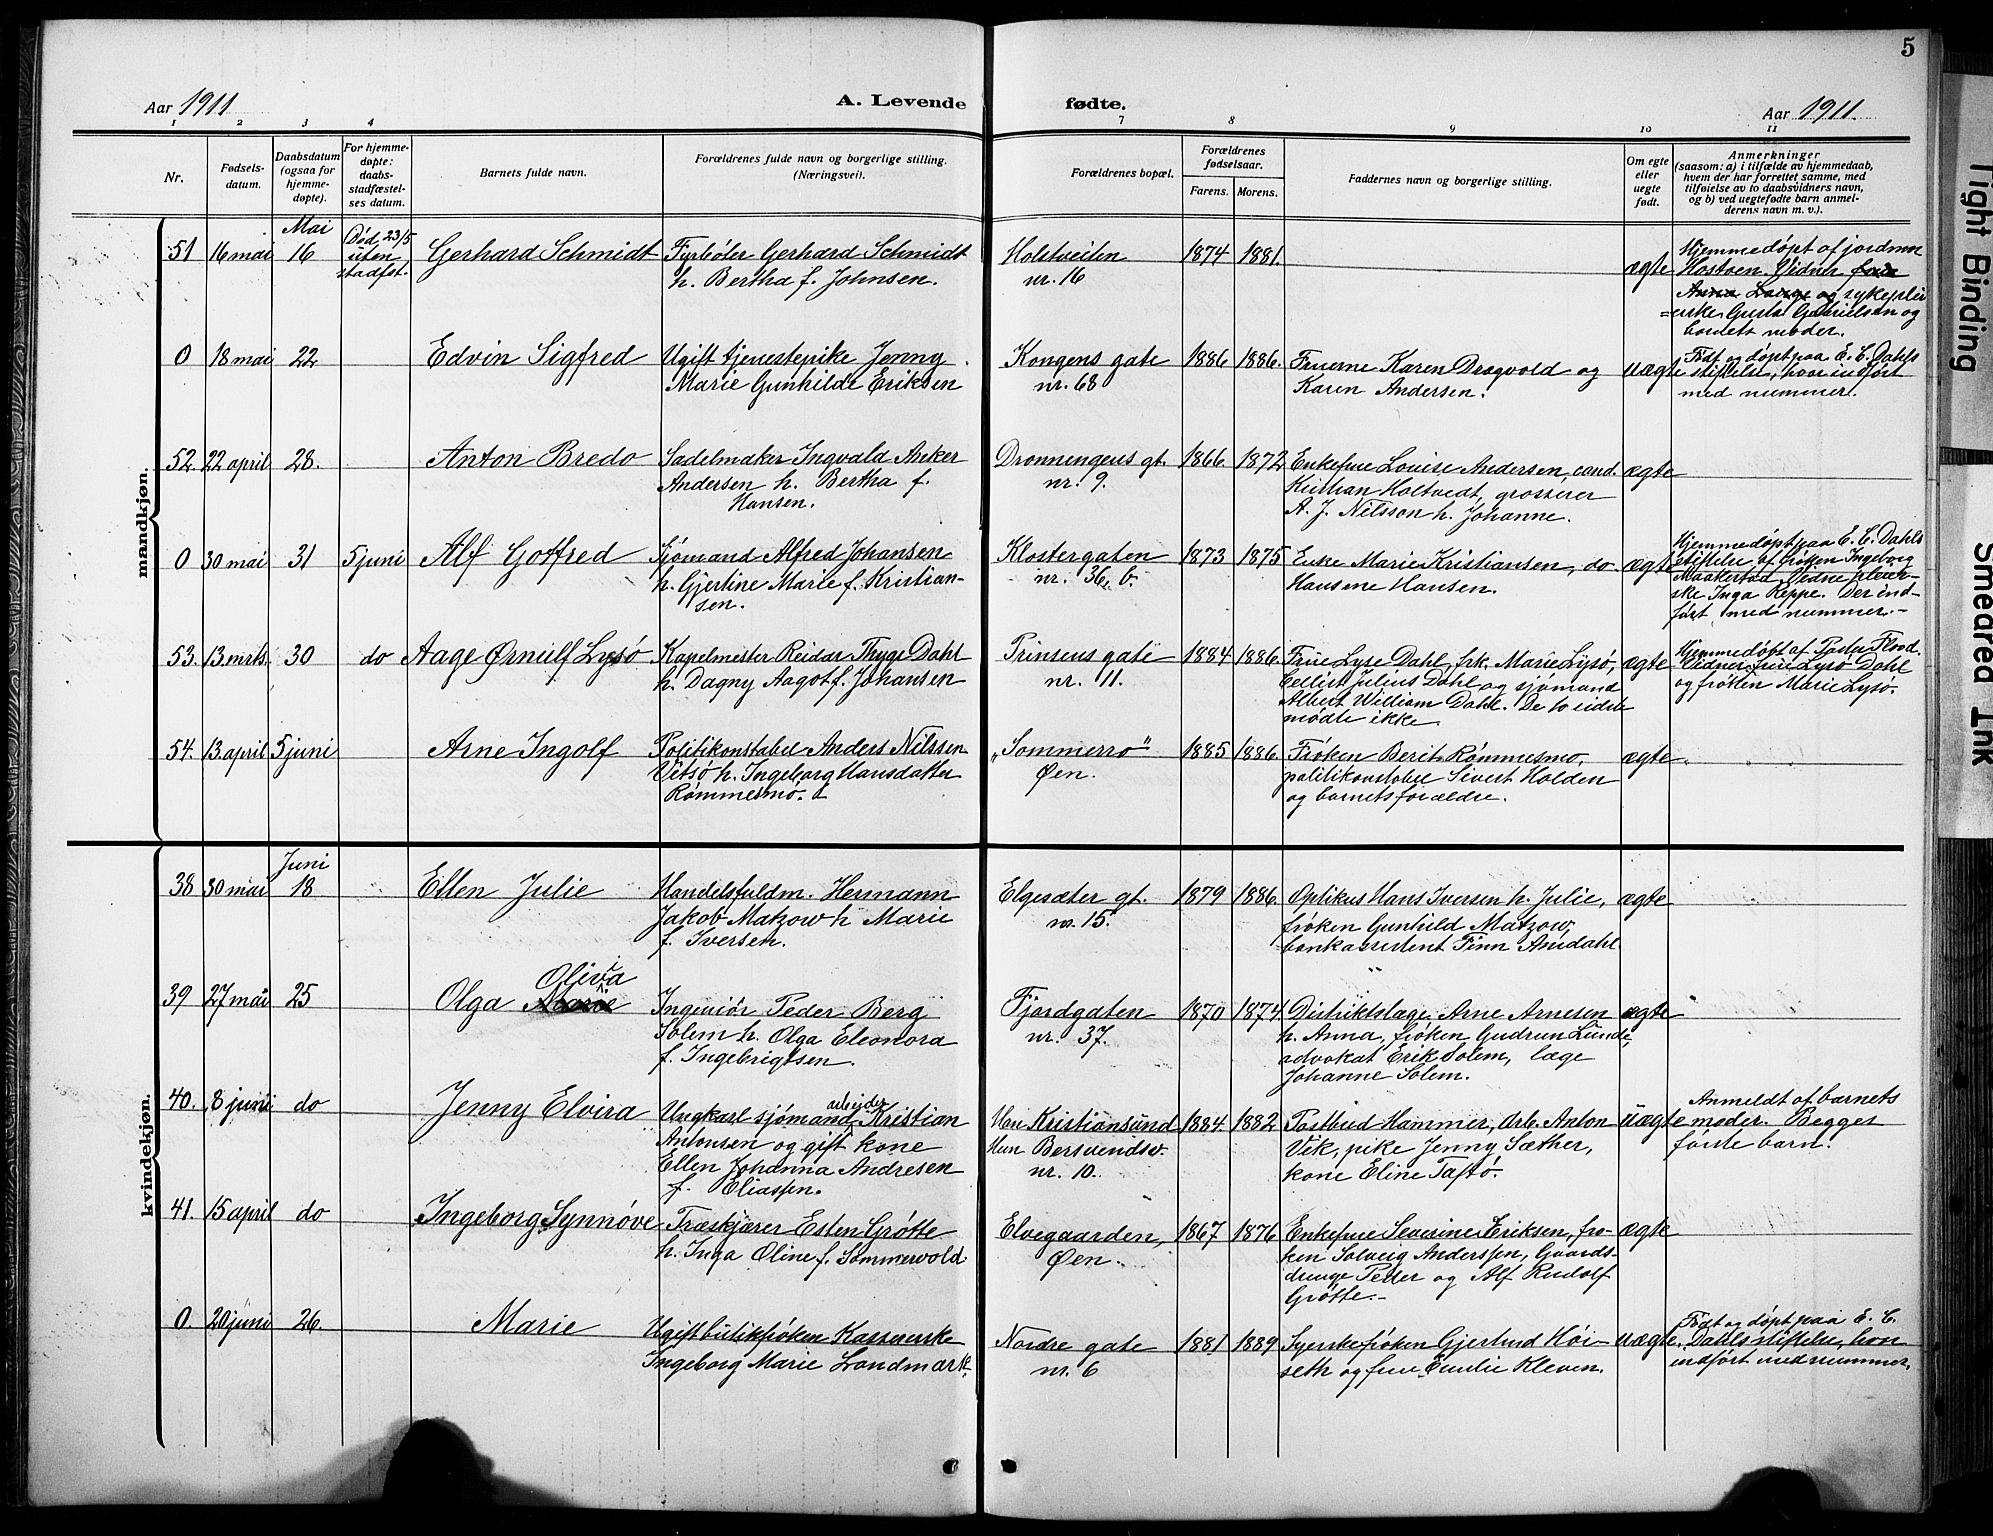 5
Aar 1911
A. Levende fødte.
Aar 1911.
1 2 3 4 7 8 9 10 11
Nr.
Fødsels-
datum.
Daabsdatum
(ogsaa for
hjemme-
døpte).
For hjemme-
døpte:
daabs-
stadfæstel-
ses datum.
Barnets fulde navn.
Forældrenes fulde navn og borgerlige stilling.
(Næringsvei).
Forældrenes bopæl.
Forældrenes
fødselsaar.
Farens. Morens.
Faddernes navn og borgerlige stilling.
Om egte
eller
uegte
født.
Anmerkninger
(saasom: a) i tilfælde av hjemmedaab,
hvem der har forrettet samme, med
tilføielse av to daabsvidners navn,
og b) ved uegtefødte barn anmel-
derens navn m. v.).
mandkjøn.
51 16 mai Mai 16
Død 23/5
uten
stadfet.
Gerhard Schmidt
Fyrbøter Gerhard Schmidt
h. Bertha f. Johnsen.
Holstveiten
nr. 16
1874 1881.
ægte
Hjemmedøpt af jordmor
Hostoen. Vidner
Anna Lange og sykeplei
=erske Gusta Gabrielsen og
barnets moder.
0 18 mai 22
Edvin Sigfred
Ugift tjenestepike Jenny
Marie Gunhilde Eriksen
Kongens gate
nr. 68
1886 1886.
Fruerne Karen Dragvold og
Karen Andersen.
uægte
Født og døpt paa E. C. Dahls
stiftelse, hvor indført
med nummer.
52. 22 april 28.
Anton Bredo
Sadelmaker Ingvald Anker
Andersen h. Bertha f.
Hansen.
Dronningens gt.
nr. 9.
1866 1872
Enkefrue Louise Andersen, cand.
Kristian Holtvedt, grosserer
A. J. Nilsson h. Johanne.
ægte
0 30 mai 31 5 juni
Alf Goffred
Sjømand Alfred Johansen
h. Gjertine Marie f. Kristian-
sen.
Klostergaten
nr. 36, b.
1873 1875
Enke Marie Kristiansen, do
Hansine Hansen.
ægte
Hjemmedøpt paa E. C. Dahls
stiftelse af frøken Ingeborg
Maakestad. Vidne pleier-
ske Inga Reppe. Der ind-
ført med nummer.-
53. 13. mrts. 30 do
Aage Ørnulf Lysø
Kapelmester Reidar Thyge Dahl
h. Dagny Aagot f. Johansen
Prinsens gate
nr. 11.
1884 1886.
Frue Lyse Dahl, frk. Marie Lysø,
Cellist Julius Dahl og sjømand
Albert William Dahl. De to sidste
mødte ikke
ægte
Hjemmedøbt af Pastor Flood.
Vidner frue Lysø Dahl
og frøken Marie Lysø.
54. 13. april 5 juni
Arne Ingolf
Politikonstabel Anders Nilssen
Vitsø h. Ingeborg Hansdatter
Rømmesmo.
„Sommerro"
Øen.
1885 1886.
Frøken Berit Rømmesmo,
politikonstabel Sivert Holden
og barnets forældre.
ægte
kvindekjøn.
38 30 mai Juni 18
Ellen Julie
Handelsfuldm. Hermann
Jakob Matzow h Marie
f. Iversen.
Elgesæter gt.
nr. 15.
1879 1886.
Optikus Hans Iversen h. Julie,
frøken Gunhild Matzow,
bankassistent Finn Amdahl
ægte
39 27 mai 25
Olga Marie Olivia
Ingeniør Peder Berg
Solem h. Olga Eleonora
f. Ingebrigtsen.
Fjordgaten
nr. 37.
1870 1874
Distriktslæge Arne Arnesen
h. Anna, frøken Gudrun Lunde,
advokat Erik Solem, læge
Johanne Solem.
ægte
40. 8 juni do
Jenny Elvira
Ungkarl sjømand arbejder Kristian
Antonsen og gift kone
Ellen Johanna Andresen
f. Eliassen.
Han Kristiansund
Hun Bersvendsv.
nr. 10.
1884 1882
Postbud Hammer, Arb. Anton
Vik, pike Jenny Sæther,
kone Eline Taftø.
uægte
Anmeldt af barnets
moder. Begges
første barn.
41. 15 april do
Ingeborg Synnøve
Træskjærer Esten Grøtte
h. Inga Oline f. Sommervold.
Elvegaarden,
Øen.
1867 1876
Enkefrue Severine Eriksen, frø-
ken Solveig Anderssen, Gaards-
drenge Peder og Alf Rudolf
Grøtte.-
ægte
0. 20 juni 26.
Marie
Ugift butikfrøken Kasserske
Ingeborg Marie Landmark.
Nordre gate
nr. 6
1881 1889
Syerskefrøken Gjertrud Høi-
seth og frue Emilie Kleven.
uægte
Født og døpt paa E. C.
Dahls stiftelse, hvor
indført med nummer.
Tight Binding
Smeared Ink